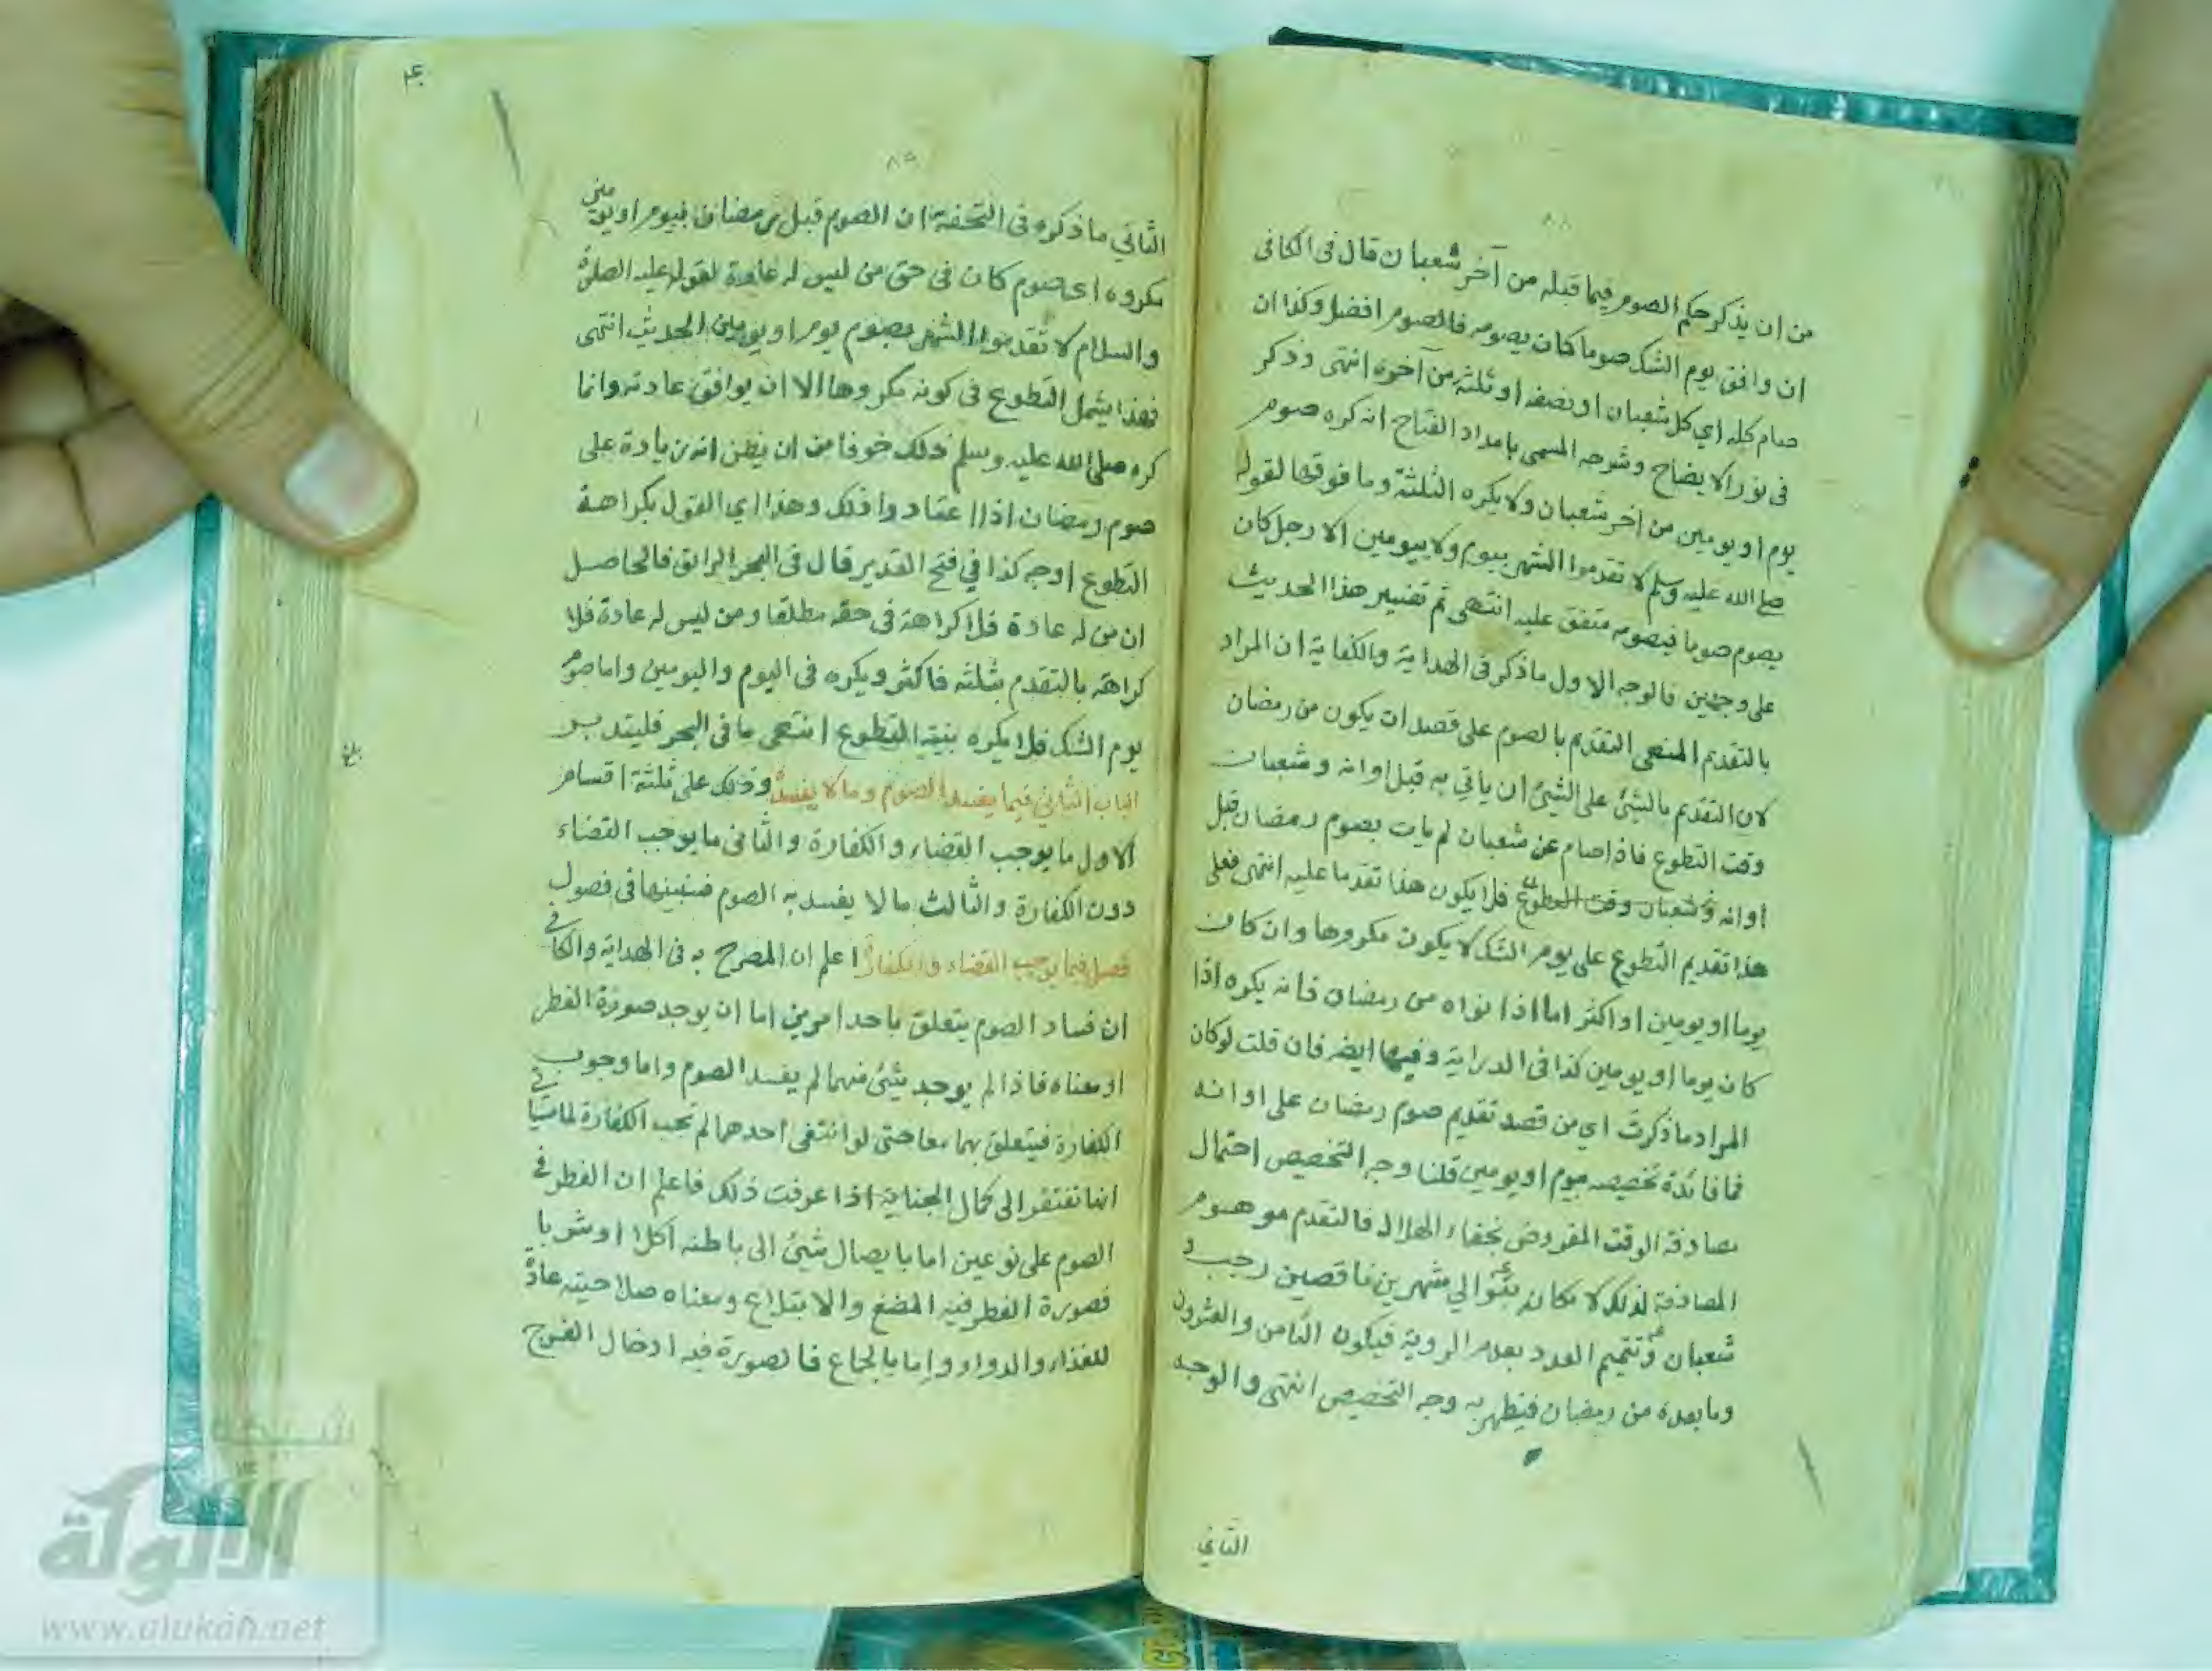 من ان يذكر حكم الصوم فيما قبله من آخر شعبان قال فى الكافى
ان وافق يوم الشك صوما كان يصومه فالصوم افضل وكذا ان
صام كله اي كل شعبان او نصفه او ثلثة من آخره انتهى وذكر
فى نور الايضاح وشرحه المسمى بامداد الفتاح انه كره صوم
يوم او يومين من اخر شعبان ولا يكره الثلثة وما فوقها لقوله
صلى الله عليه وسلم لا تقدموا الشهر بيوم ولا بيومين الا رجل كان
يصوم صوما فيصومه متفق عليه انتهى ثم تفسير هذا الحديث
على وجهين فالوجه الاول ما ذكر فى الهداية والكفاية ان المراد
بالتقديم المنهى التقديم بالصوم على قصد ان يكون من رمضان
لان التقديم بالشئ على الشئ ان ياتي به قبل اوانه وشعبان
وقت التطوع فاذا صام عن شعبان لم يات بصوم رمضان قبل
اوانه وشعبان وقت التطوع فلا يكون هذا تقدما عليه انتهى فعلى
هذا تقديم التطوع على يوم الشك لا يكون مكروها وان كان
يوما او يومين او اكثر اما اذا نواه من رمضان فانه يكره اذا
كان يوما او يومين كذا فى الدراية وفيها ايضه فان قلت لو كان
المراد ما ذكرت اي من قصد تقديم صوم رمضان على اوانه
فما فائدة تخصيصه بيوم او يومين قلنا وجه التخصيص احتمال
مصادفة الوقت المفروض بخفاء الهلال فالتقدم موهوم
المصادفة لذلك لا مكان بتوالي شهرين ناقصين رجب و
شعبان وتتميم العدد بعدم الروية فيكون الثامن والعشرون
وما بعده من رمضان فيظهر به وجه التخصيص انتهى والوجه
الثاني
٨٥
الثاني ما ذكره فى التحفة ان الصوم قبل رمضان بيوم او يومين
مكروه اى صوم كان فى حق من ليس له عادة لقوله عليه الصلوة
والسلام لا تقدموا الشهر بصوم يوم او يومين الحديث انتهى
فهذا يشمل التطوع فى كونه مكروها الا ان يوافق عادته وانما
كره صلى الله عليه وسلم ذلك خوفا من ان يظن انه زيادة على
صوم رمضان اذا اعتادوا ذلك وهذا اي القول بكراهة
التطوع اوجه كذا في فتح القدير قال فى البحر الرائق فالحاصل
ان من له عادة فلا كراهة فى حقه مطلقا ومن ليس له عادة فلا
كراهة بالتقدم بثلثه فاكثر ويكره فى اليوم واليومين واما صوم
يوم الشك فلا يكره بنية التطوع انتهى ما فى البحر فليتدبر
الباب الثاني فيما يفسد الصوم وما لا يفسده وذلك على ثلثة اقسام
الاول ما يوجب القضاء والكفارة والثانى ما يوجب القضاء
دون الكفارة والثالث ما لا يفسد به الصوم فنبينها فى فصول
فصل فيما يوجب القضاء والكفارة اعلم ان المصرح به فى الهداية والكافى
ان فساد الصوم يتعلق باحد امرين اما ان يوجد صورة الفطر
او معناه فاذا لم يوجد شئ منهما لم يفسد الصوم واما وجوب
الكفارة فيتعلق بهما معا حتى لو انتفى احدهما لم تجب الكفارة لما سيأتي
انها تفتقر الى كمال الجناية اذا عرفت ذلك فاعلم ان الفطر فى
الصوم على نوعين اما بايصال شئ الى باطنه اكلا او شربا
فصورة الفطر فيه المضغ والابتلاع ومعناه صلاحيته عادة
للغذاء والدواء واما بالجماع فالصورة فيه ادخال الفرج
شبكة
الألوكة
www.alukah.net